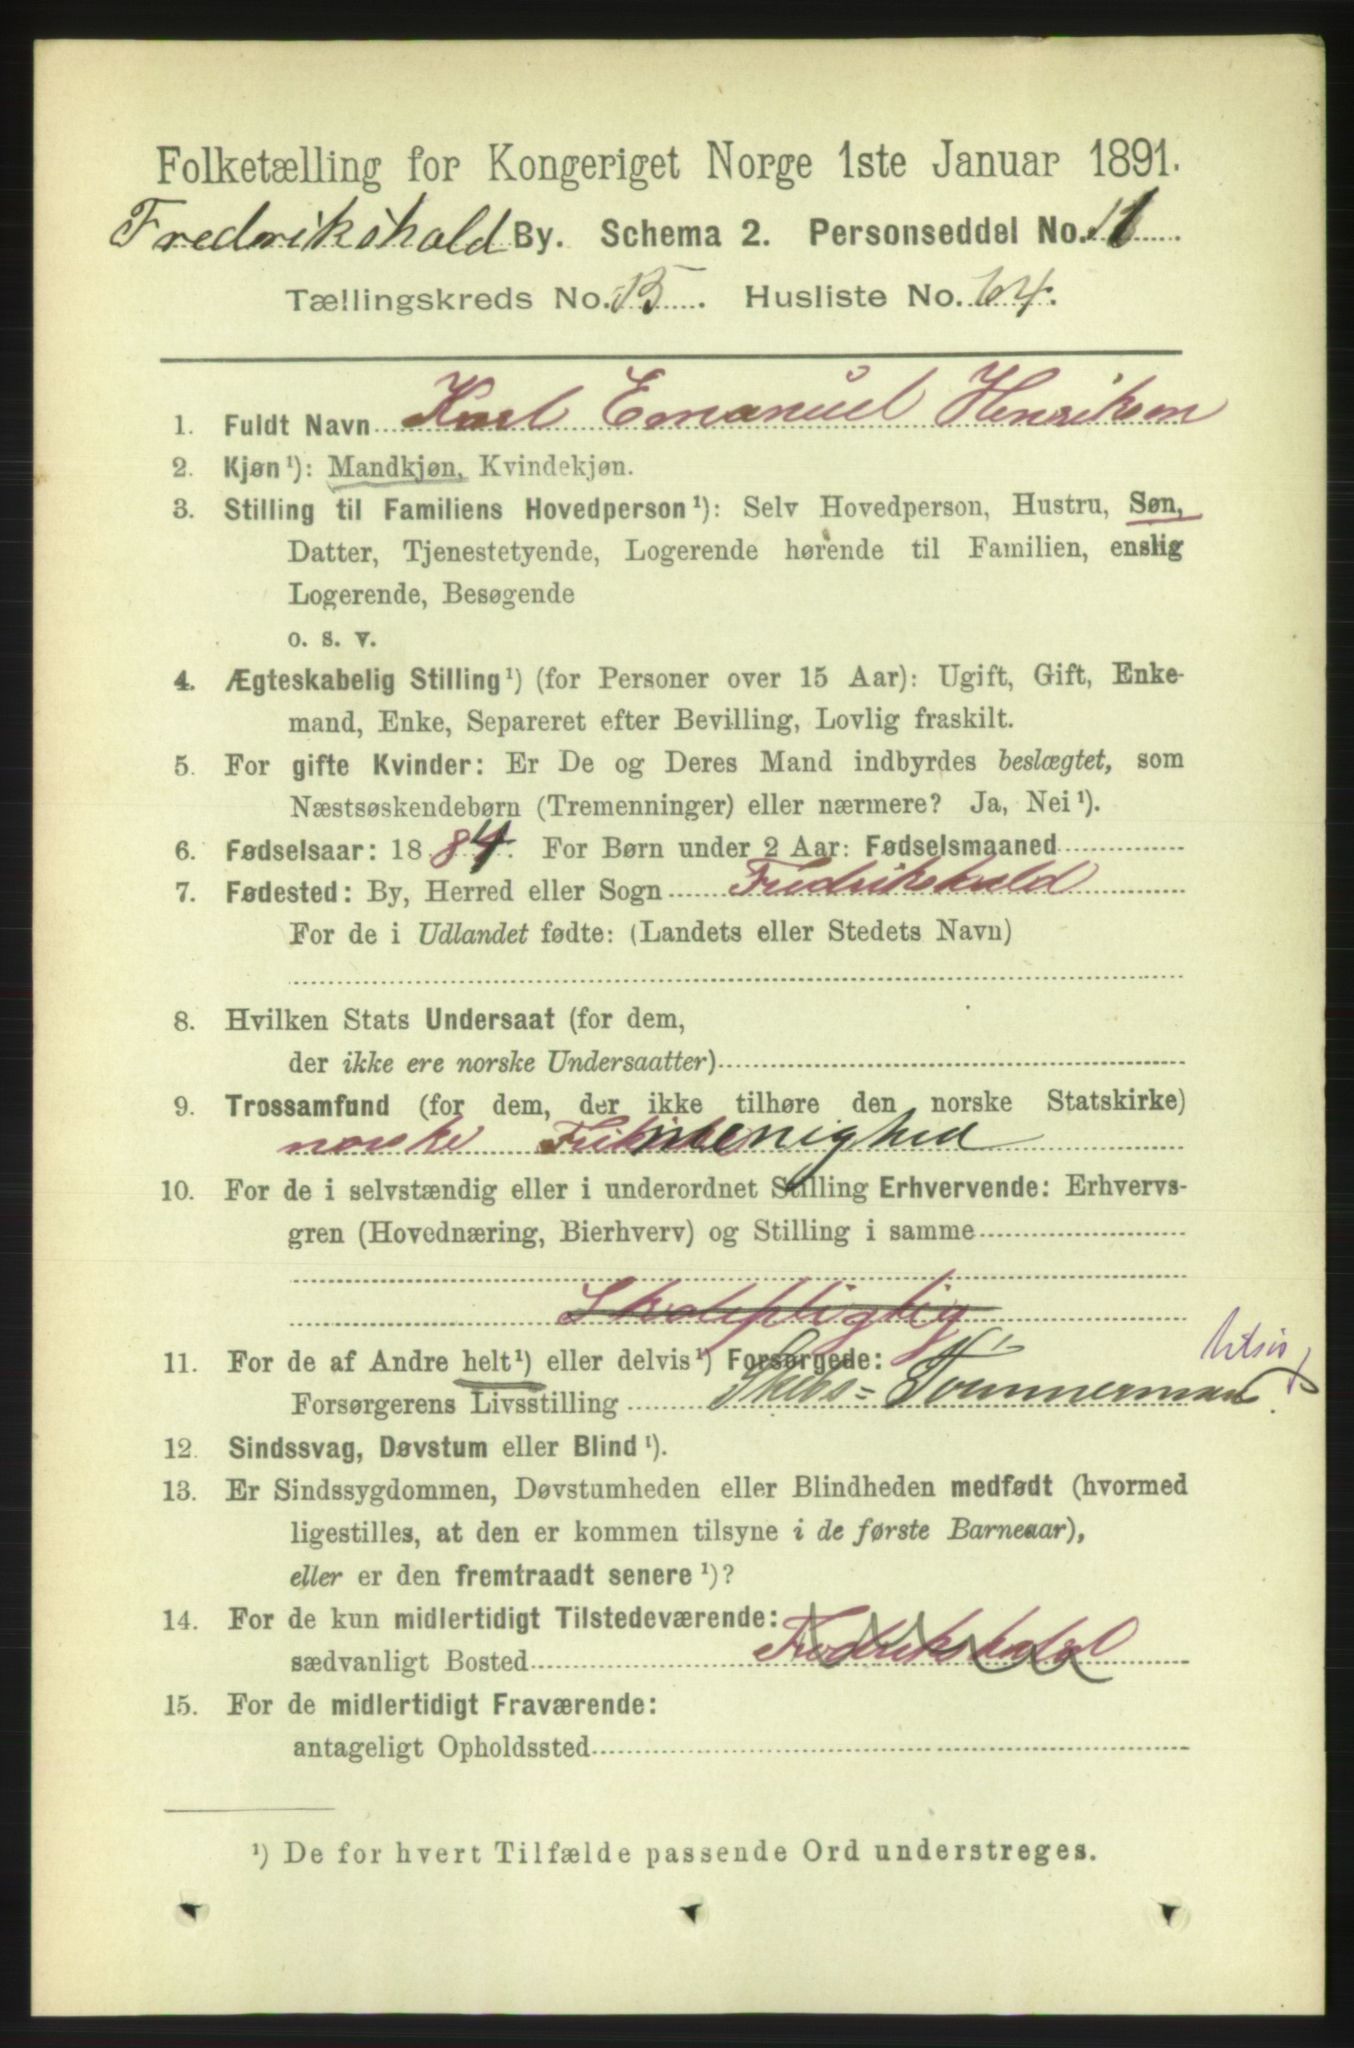 Folketælling for Kongeriget Norge 1ste Januar 1891.
Fredrikshald By. Schema 2. Personseddel No. 11
Tællingskreds No. 15. Husliste No. 64.
1. Fuldt Navn Karl Emanuel Henriksen
2. Kjøn ¹): Mandkjøn, Kvindekjøn.
3. Stilling til Familiens Hovedperson ¹): Selv Hovedperson, Hustru, Søn,
Datter, Tjenestetyende, Logerende hørende til Familien, enslig
Logerende, Besøgende
o. s. v.
4. Ægteskabelig Stilling ¹) (for Personer over 15 Aar): Ugift, Gift, Enke-
mand, Enke, Separeret efter Bevilling, Lovlig fraskilt.
5. For gifte Kvinder: Er De og Deres Mand indbyrdes beslægtet, som
Næstsøskendebørn (Tremenninger) eller nærmere? Ja, Nei ¹).
6. Fødselsaar: 18 84. For Børn under 2 Aar: Fødselsmaaned
7. Fødested: By, Herred eller Sogn Fredrikshald
For de i Udlandet fødte: (Landets eller Stedets Navn)
8. Hvilken Stats Undersaat (for dem,
der ikke ere norske Undersaatter)
9. Trossamfund (for dem, der ikke tilhøre den norske Statskirke)
norske Frimenighed
10. For de i selvstændig eller i underordnet Stilling Erhvervende: Erhvervs-
gren (Hovednæring, Bierhverv) og Stilling i samme
Skolepligtig
11. For de af Andre helt ¹) eller delvis ¹) Forsørgede:
Forsørgerens Livsstilling Skibs=Tømmermand
12. Sindssvag, Døvstum eller Blind ¹).
13. Er Sindssygdommen, Døvstumheden eller Blindheden medfødt (hvormed
ligestilles, at den er kommen tilsyne i de første Barneaar),
eller er den fremtraadt senere ¹)?
14. For de kun midlertidigt Tilstedeværende:
sædvanligt Bosted Fredrikshald
15. For de midlertidigt Fraværende:
antageligt Opholdssted
¹) De for hvert Tilfælde passende Ord understreges.